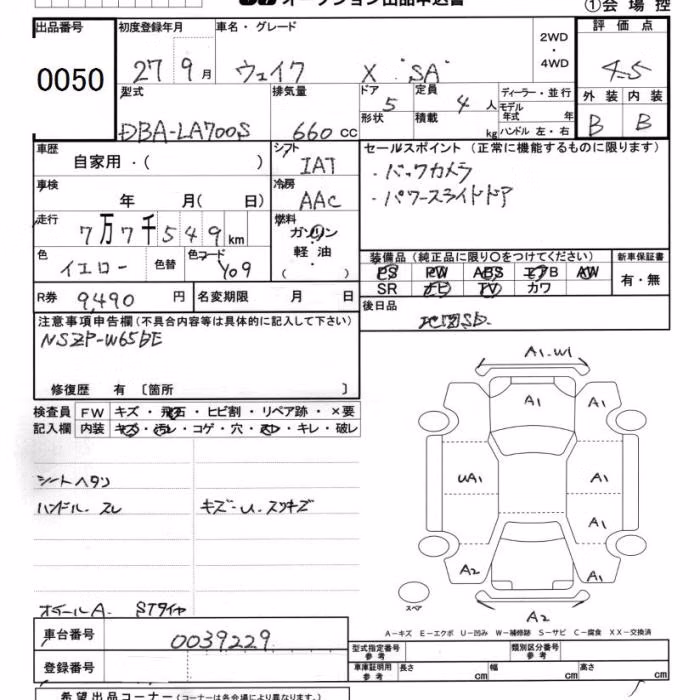 オークション出品申込書 ①会場控
出品番号 初度登録年月 車名・グレード 2WD・4WD 評価点
0050 27年9月 ウェイク X "SA" 4.5
型式 排気量 ドア 定員 ディーラー・並行 外装 内装
DBA-LA700S 660cc 5 4人 モデル年式 年 B B
形状 積載 kg ハンドル 左・右
車歴 シフト セールスポイント (正常に機能するものに限ります)
自家用・( ) IAT ・バックカメラ
車検 冷房 ・パワースライドドア
年 月(日) AAC
走行 燃料
7万7千549km ガソリン
軽油
・( )
色 色替 色コード 装備品(純正品に限り○をつけてください) 新車保証書
イエロー Y09 PS PW ABS エアB AW 有・無
SR ナビ TV カワ
R券 9,490円 名変期限 月 日 後日品
注意事項申告欄(不具合内容等は具体的に記入して下さい) 地図SD.
NSZP-W65DE
修復歴 有 〔箇所 〕
検査員 FW キズ・飛石・ヒビ割・リペア跡・×要
記入欄 内装 キズ・汚レ・コゲ・穴・スレ・キレ・破レ
シートヘタリ
ハンドル・スレ キズ・U・スリキズ
A1.W1
A1 A1
UA1 A1
A1
A2 A1
スペア A2
ホイールA. STタイヤ
A-キズ E-エクボ U-凹み W-補修跡 S-サビ C-腐食 XX-交換済
車台番号 0039229
型式指定番号 参考 類別区分番号 参考
登録番号 車庫証明用 参考 長さ cm 幅 cm 高さ cm
希望出品コーナー(コーナーは各会場により異なります。)